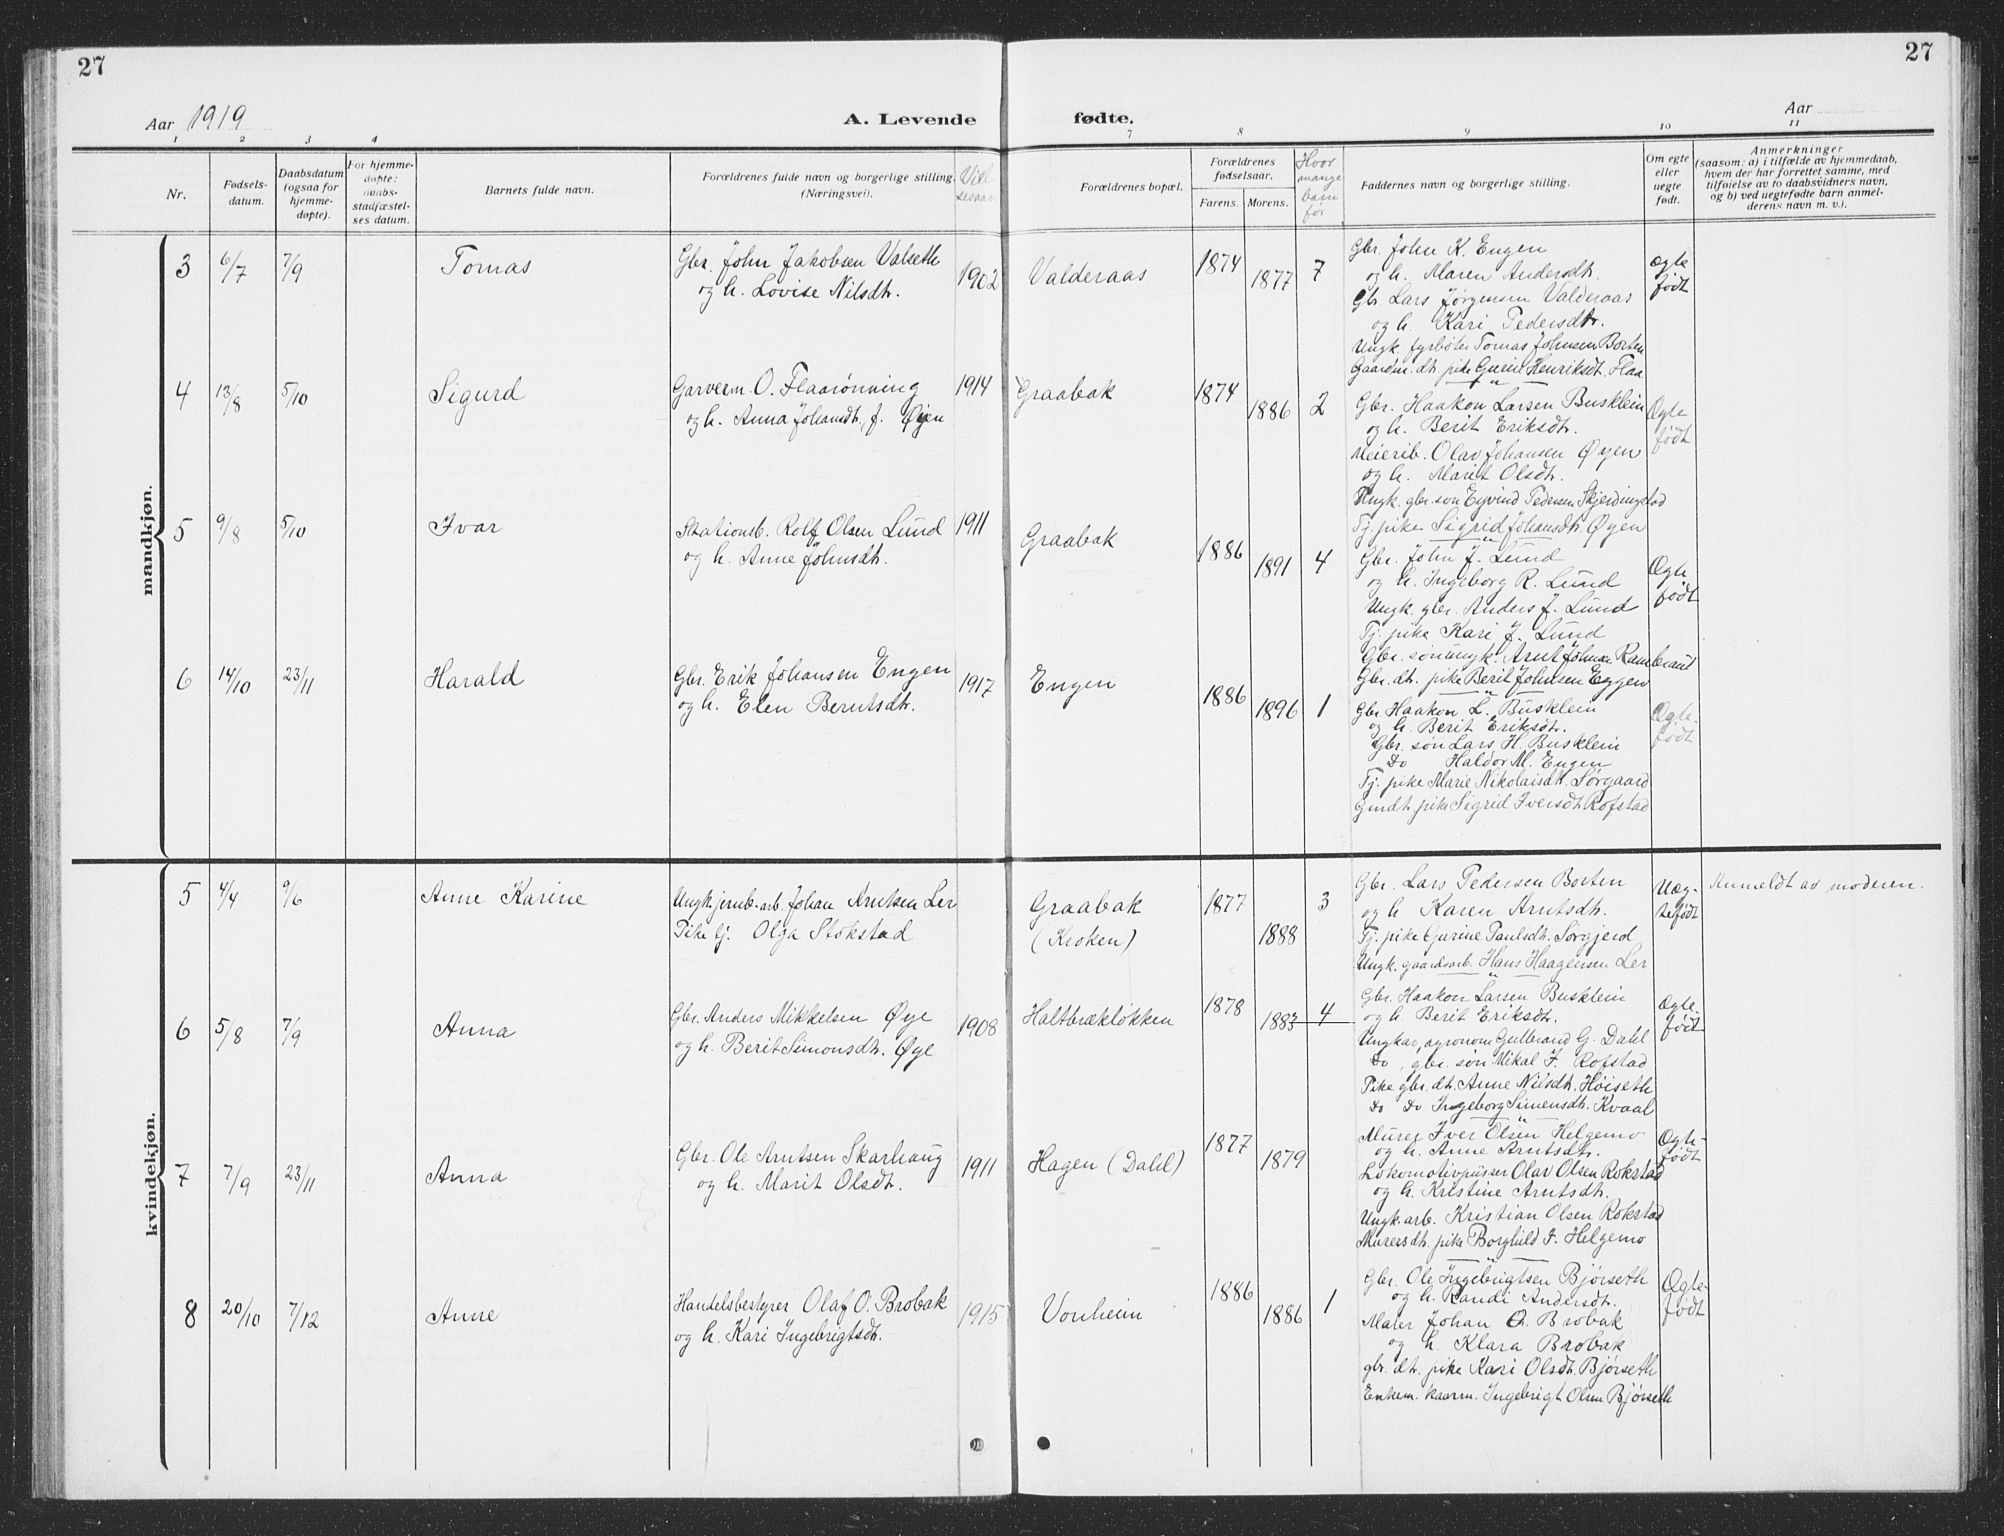 27
27
Aar 1919
A. Levende
fødte.
Aar
1 2 3 4 7 8 9 10 11
Nr.
Fødsels-
datum.
Daabsdatum
(ogsaa for
hjemme-
døpte).
For hjemme-
døpte:
daabs-
stadfæstel-
ses datum.
Barnets fulde navn.
Forældrenes fulde navn og borgerlige stilling.
(Næringsvei).
Viel
sesaar.
Forældrenes bopæl.
Forældrenes
fødselsaar.
Farens. Morens.
Hvor
mange
barn
før
Faddernes navn og borgerlige stilling.
Om egte
eller
uegte
født.
Anmerkninger
(saasom: a) i tilfælde av hjemmedaab,
hvem der har forrettet samme, med
tilføielse av to daabsvidners navn,
og b) ved uegtefødte barn anmel-
derens navn m. v.).
mandkjøn.
3 6/7 7/9 Tomas
Gbr. John Jakobsen Valseth
og h. Lovise Nilsdtr.
1902 Valderaas 1874 1877 7
Gbr. John K. Engen
og h. Maren Andersdtr.
Gbr. Lars Jørgensen Valderaas
og h. Kari Pedersdtr.
Ungk. fyrbøter Tomas Johnsen Borten
Gaardm. dt. pike Gurine Henriksdt. Flaa
Ægte
født
4 13/8 5/10 Sigurd
Garverm. O. Flaarønning
og h. Anna Johansdt. f. Øyen
1914 Graabak 1874 1886 2
Gbr. Haakon Larsen Busklein
og h. Berit Eriksdtr.
Meierib. Olav Johansen Øyen
og h. Marit Olsdt.
Ungk. gbr. søn Eyvind Pedersen Skjerdingstad
Tj. pike Sigrid Johansdtr. Øyen
Ægte
født
5 9/8 5/10 Ivar
Stationsb. Rolf Olsen Lund
og h. Anne Johnsdtr.
1911 Graabak 1886 1891 4
Gbr. John J. Lund
og h. Ingeborg R. Lund
Ungk. gbr. Anders J. Lund
Tj. pike Kari J. Lund
Gbr. søn ungk. Arnt Johnsen Rambraut
Gbr. dt. pike Berit Johnsen Eggen
Ægte
født
6 14/10 23/11 Harald
Gbr. Erik Johansen Engen
og h. Elen Berntsdtr.
1917 Engen 1886 1896 1
Gbr. Haakon L. Busklein
og h. Berit Eriksdtr.
Gbr. søn Lars H. Busklein
Do Haldor M. Engen
Tj. pike Marie Nikolaisdt. Sørgaard
Gmdt. pike Sigrid Iversdt. Rofstad
Ægte-
født
kvindekjøn.
5 4/4 9/6 Anne Karine
Ungk. jernb. arb. Johan Arntsen Ler
Pike tj. Olga Stokstad
Graabak
(Kroken)
1877 1888 3
Gbr. Lars Pedersen Borten
og h. Karen Arntsdtr.
Tj. pike Gurine Paulsdtr. Sørgjerd
Ungk. gaardsarb. Hans Haagensen Ler
Uæg-
tefødt
Anmeldt av moderen.
6 5/8 7/9 Anna
Gbr. Anders Mikkelsen Øye
og h. Berit Simonsdtr. Øye
1908 Haltbrækløkken 1878 1883 4
Gbr. Haakon Larsen Busklein
og h. Berit Eriksdtr.
Ungkar, agronom Gulbrand G. Dahl
Do, gbr. søn Mikal J. Rofstad
Pike gbr. dt. Anne Nilsdtr. Høiseth
Do Do Ingeborg Simensdtr. Kvaal
Ægte-
født
7 7/9 23/11 Anna
Gbr. Ole Arntsen Skarhaug
og h. Marit Olsdt.
1911 Hagen (Dahl) 1877 1879
Murer Iver Olsen Helgemo
og h. Anne Arntsdtr.
Lokomotivpusser Olav Olsen Rokstad
og h. Kristine Arntsdtr.
Ungk. arb. Kristian Olsen Rokstad
Murersdt. pike Borghild I. Helgemo
Ægte-
født
8 20/10 7/12 Anne
Handelsbestyrer Olaf O. Brobak
og h. Kari Ingebrigtsdt.
1915 Vonheim 1886 1886 1
Gbr. Ole Ingebrigtsen Bjørseth
og h. Randi Andersdt.
Maler Johan O. Brobak
og h. Klara Brobak
gbr. dt. pike Kari Olsdt. Bjørseth
Enkem. kaarm. Ingebrigt Olsen Bjørseth
Ægte-
født